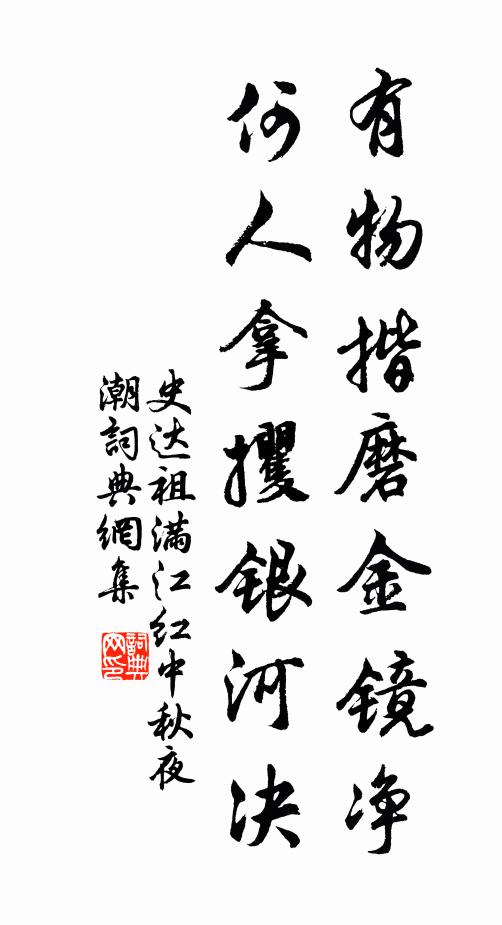 有物揩磨金镜净
何人拿攫银河决
史达祖满江红中秋夜
潮词典網集
詞典
网印